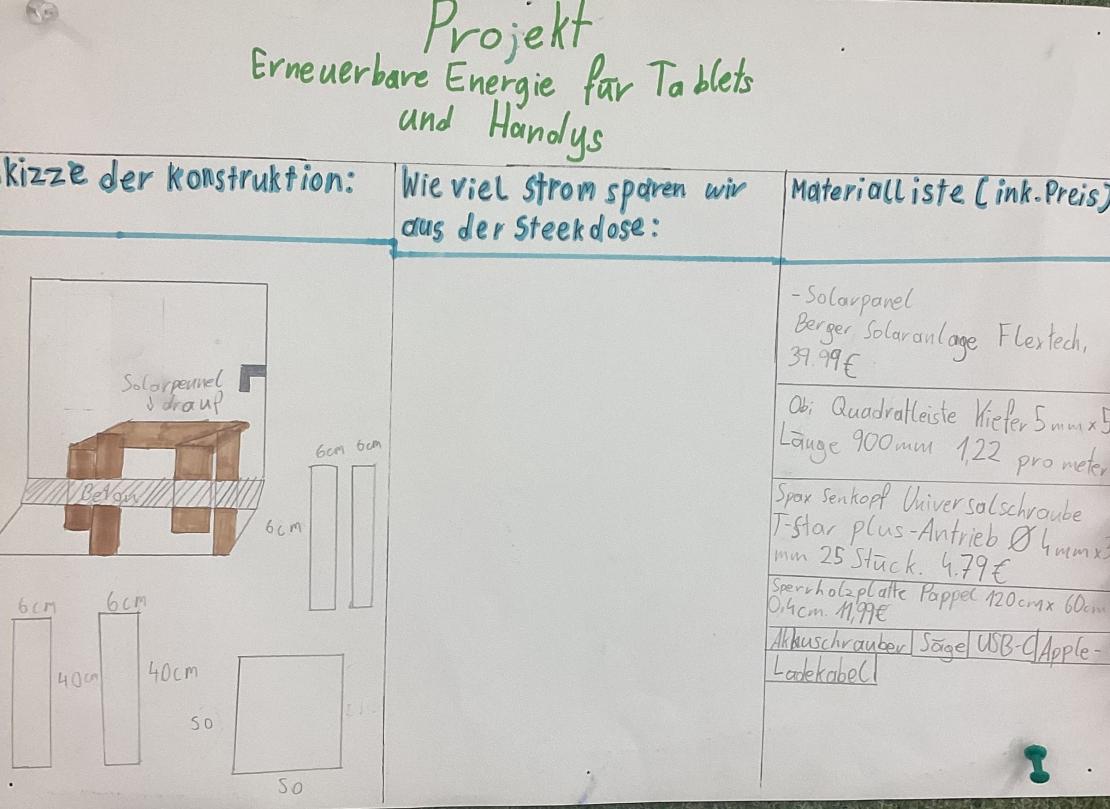 Projekt
Erneuerbare Energie für Tablets
und Handys
kizze der Konstruktion:
Solarpennel
↓ drauf
Beton
6cm 6cm
6cm
6cm 6cm
40cm 40cm
50
50
Wie viel Strom sparen wir
aus der Steekdose:
Materialliste (ink.Preis)
-Solarpanel
Berger Solaranlage Flextech,
39.99€
Obi Quadratleiste Kiefer 5mm x 5
Länge 900mm 1,22 pro meter
Spax Senkopf Universalschraube
T-Star plus-Antrieb Ø 4mm x 3
mm 25 Stück. 4.79€
Sperrholzplatte Pappel 120cm x 60cm
0,4cm. 11,99€
Akkuschrauber Säge USB-C Apple-
Ladekabel